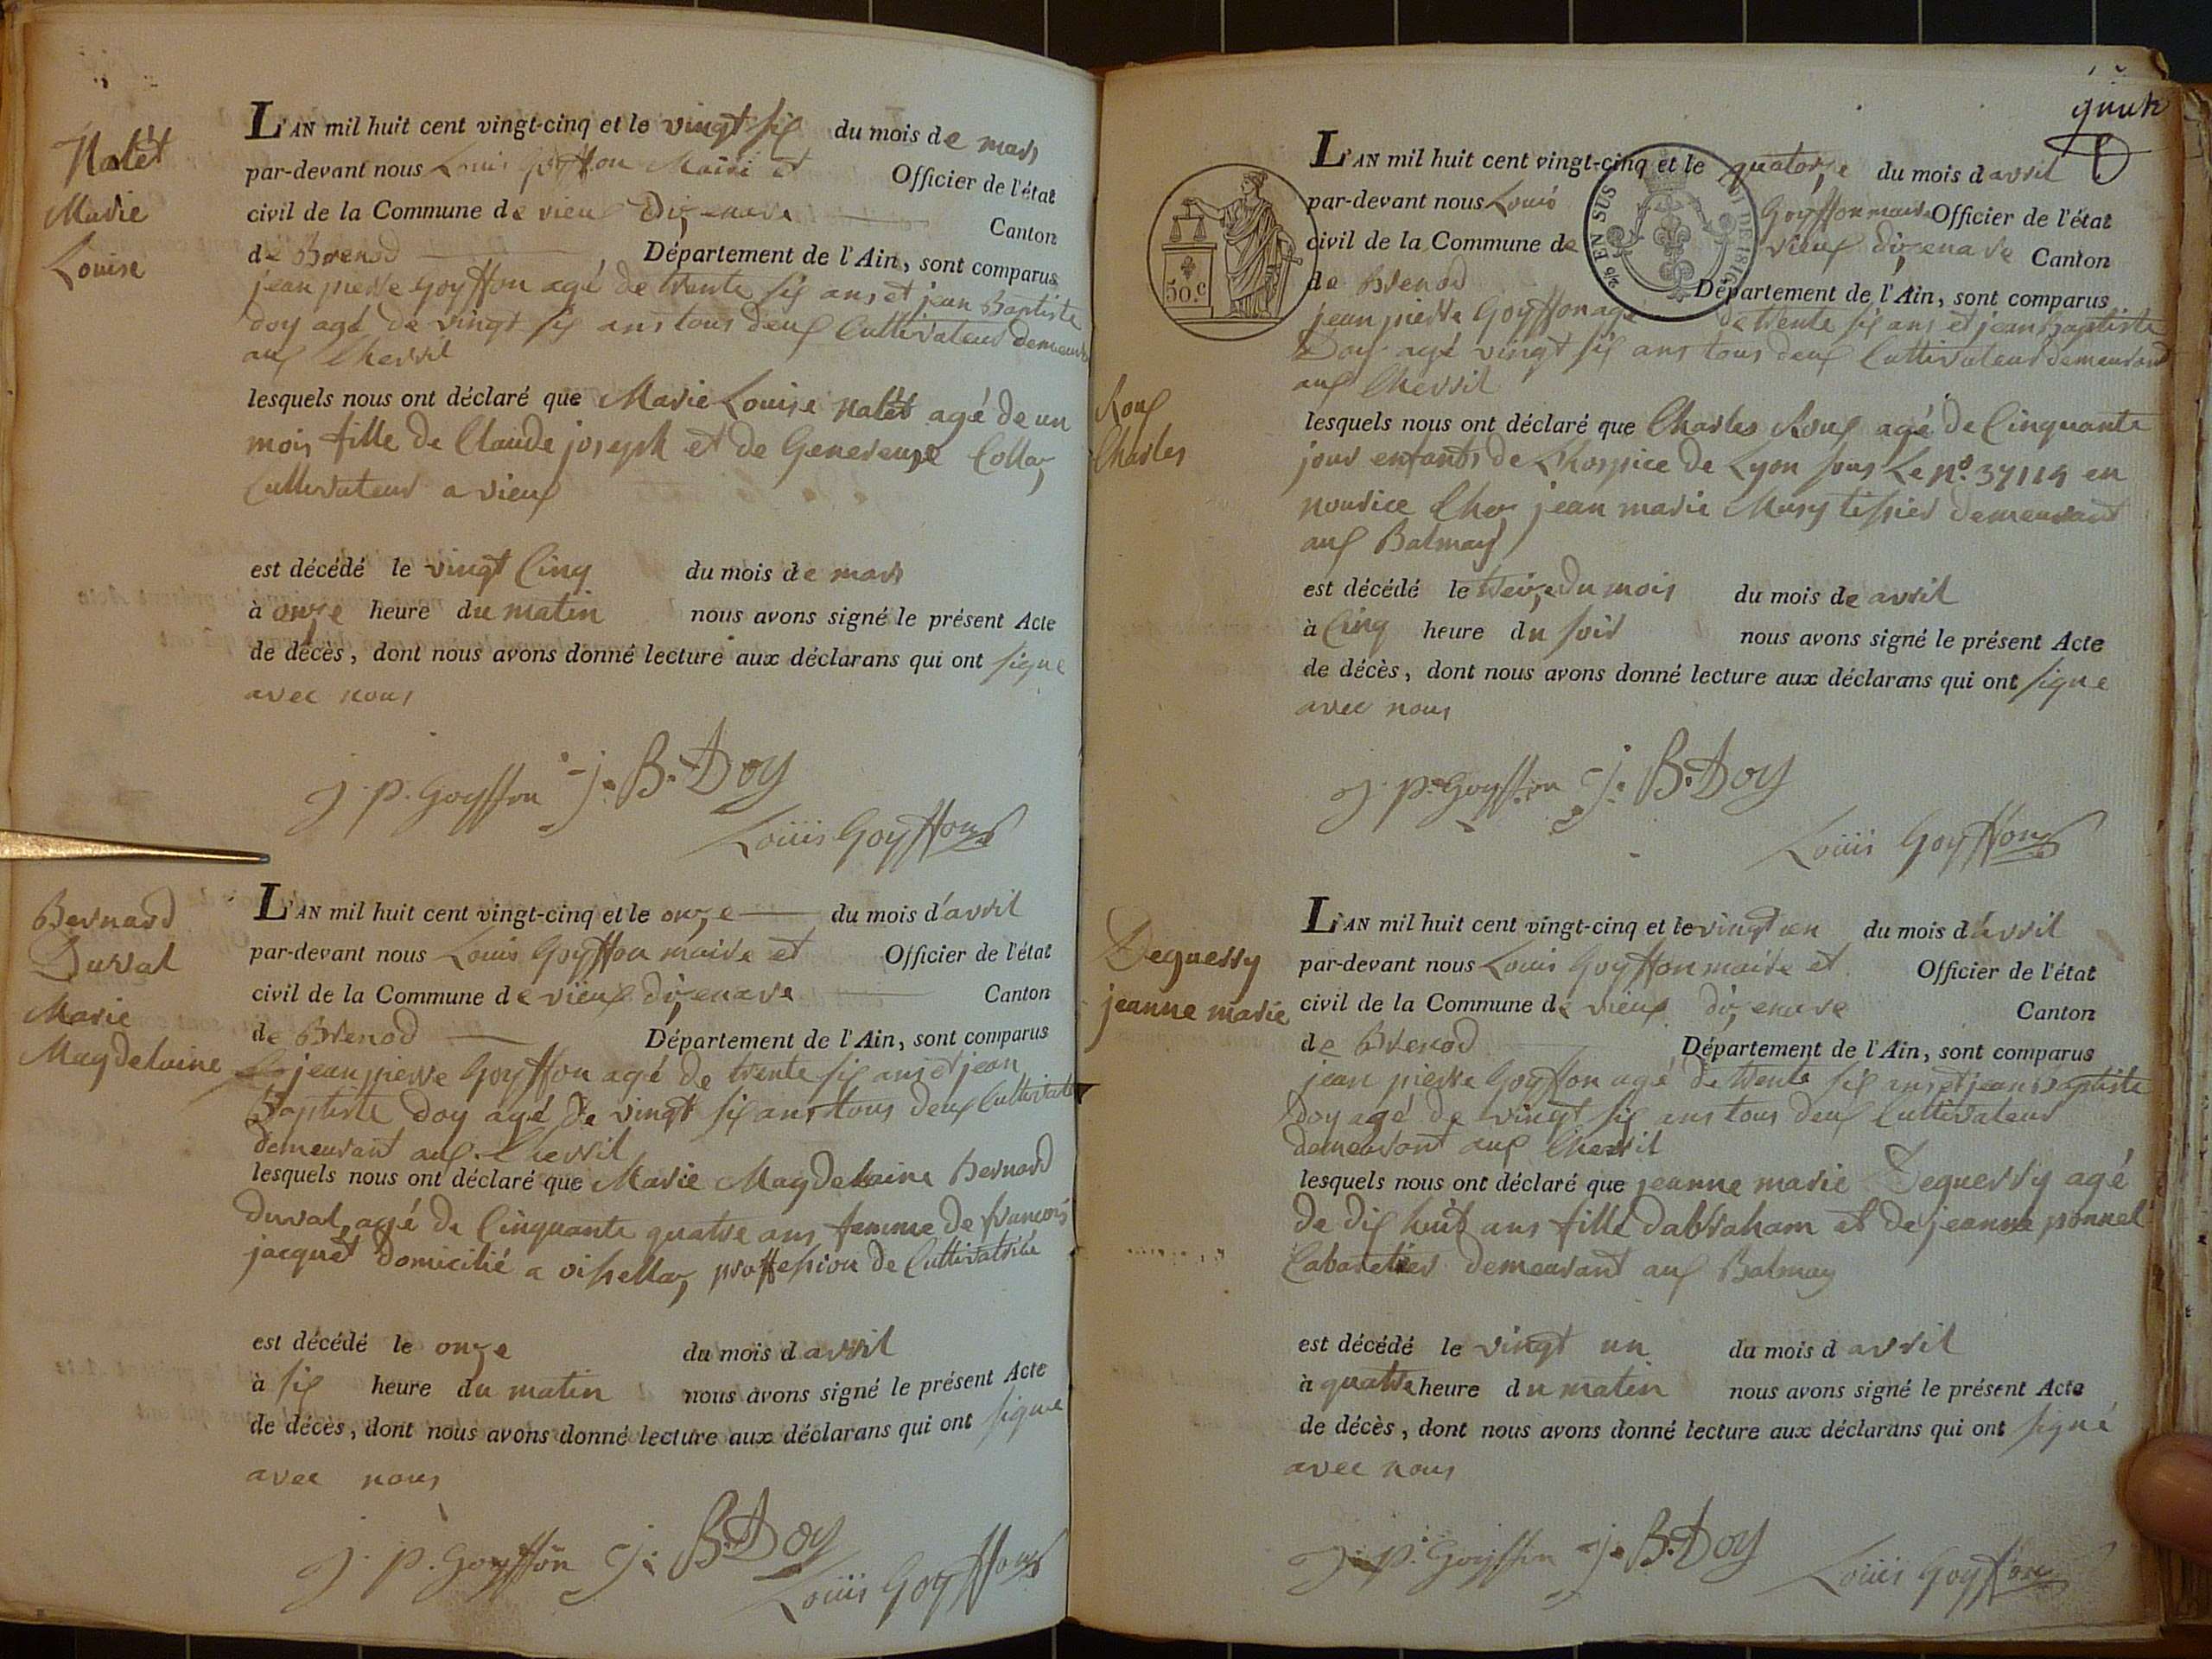 Natet
Marie
Louise
L'AN mil huit cent vingt-cinq et le vingt six du mois de mars
par-devant nous Louis Goyffon Maire et Officier de l'état
civil de la Commune de vieux dizenave Canton
de Brenod Département de l'Ain, sont comparus
jean pierre Goyffon agé de trente six ans et jean Baptiste
Doy agé de vingt six ans tous deux Cultivateur demeurant
aux Chevril
lesquels nous ont déclaré que Marie Louise Natet agé de un
mois fille de Claude joseph et de Genereuse Collaz
Cultivateur a vieux
est décédé le vingt Cinq du mois de mars
à onze heure du matin nous avons signé le présent Acte
de décès, dont nous avons donné lecture aux déclarans qui ont signe
avec nous
J. P. Goyffon J. B. Doy
Louis Goyffon
Bernard
Duval
Marie
Magdelaine
L'AN mil huit cent vingt-cinq et le onze du mois d'avril
par-devant nous Louis Goyffon maire et Officier de l'état
civil de la Commune de vieux dizenave Canton
de Brenod Département de l'Ain, sont comparus
jean pierre Goyffon agé de trente six ans et jean
Baptiste Doy agé de vingt six ans tous deux Cultivate
demeurant aux Chevril
lesquels nous ont déclaré que Marie Magdelaine Bernard
duval, agé de Cinquante quatre ans femme de francois
jacquet domicilié a vissellaz, proffession de Cultivatrice
est décédé le onze du mois d avril
à six heure du matin nous avons signé le présent Acte
de décès, dont nous avons donné lecture aux déclarans qui ont signe
avec nous
J. P. Goyffon J. B. Doy
Louis Goyffon
50.c
EN SUS
LOI DE 1816
L'AN mil huit cent vingt-cinq et le quatorze du mois d avril
par-devant nous Louis Goyffon maire Officier de l'état
civil de la Commune de vieux dizenave Canton
de Brenod Département de l'Ain, sont comparus
jean pierre Goyffon agé de trente six ans et jean Baptiste
Doy agé vingt six ans tous deux Cultivateur demeurant
aux Chevril
Roux
Charles
lesquels nous ont déclaré que Charles Roux agé de Cinquante
jour enfants de Lhospice de Lyon sous Le No. 37114 en
nourice Chez jean marie Musy tissier demeurant
aux Balmay
est décédé le treize du mois du mois de avril
à Cinq heure du soir nous avons signé le présent Acte
de décès, dont nous avons donné lecture aux déclarans qui ont signe
avec nous
J. P. Goyffon J. B. Doy
Louis Goyffon
Deguerry
jeanne marie
L'AN mil huit cent vingt-cinq et le vingt un du mois d'avril
par-devant nous Louis Goyffon maire et Officier de l'état
civil de la Commune de vieux dizenave Canton
de Brenod Département de l'Ain, sont comparus
jean pierre Goyffon agé de trente six ans et jean Baptiste
Doy agé de vingt six ans tous deux Cultivateur
demeurant aux Chevril
lesquels nous ont déclaré que jeanne marie Deguerry agé
de dix huit ans fille dabraham et de jeanne ponnet
Cabaretier demeurant aux Balmay
est décédé le vingt un du mois d avril
à quatre heure du matin nous avons signé le présent Acte
de décès, dont nous avons donné lecture aux déclarans qui ont signé
avec nous
J. P. Goyffon J. B. Doy
Louis Goyffon